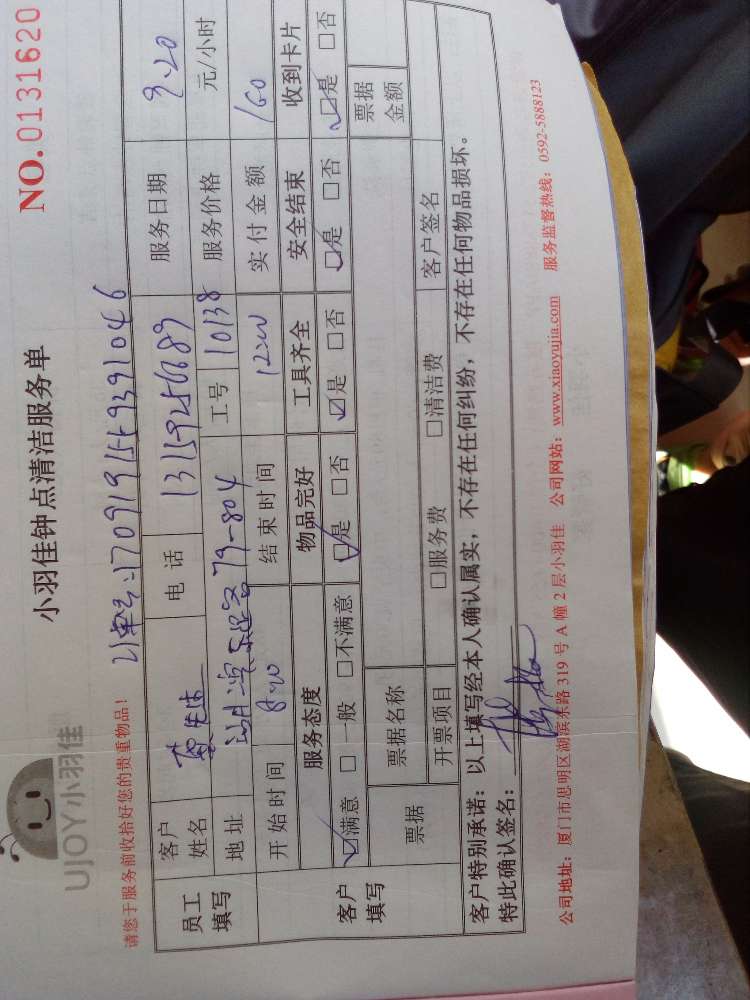 UJOY小羽佳
小羽佳钟点清洁服务单
NO.0131620
请您于服务前收拾好您的贵重物品！
订单号:1709191559391046
员工填写
客户姓名 先生 电话 服务日期 9.20
地址 79-804 工号 10138 服务价格 元/小时
客户填写
开始时间 8:00 结束时间 12:00 实付金额 160
服务态度 物品完好 工具齐全 安全结束 收到卡片
☑满意 □一般 □不满意 ☑是 □否 ☑是 □否 ☑是 □否 ☑是 □否
票据 票据名称 票据金额
开票项目 □服务费 □清洁费 客户签名
客户特别承诺：以上填写经本人确认属实，不存在任何纠纷，不存在任何物品损坏。
特此确认签名：
公司地址：厦门市思明区湖滨东路 319 号 A 幢 2 层小羽佳 公司网站：www.xiaoyujia.com 服务监督热线：0592-5888123